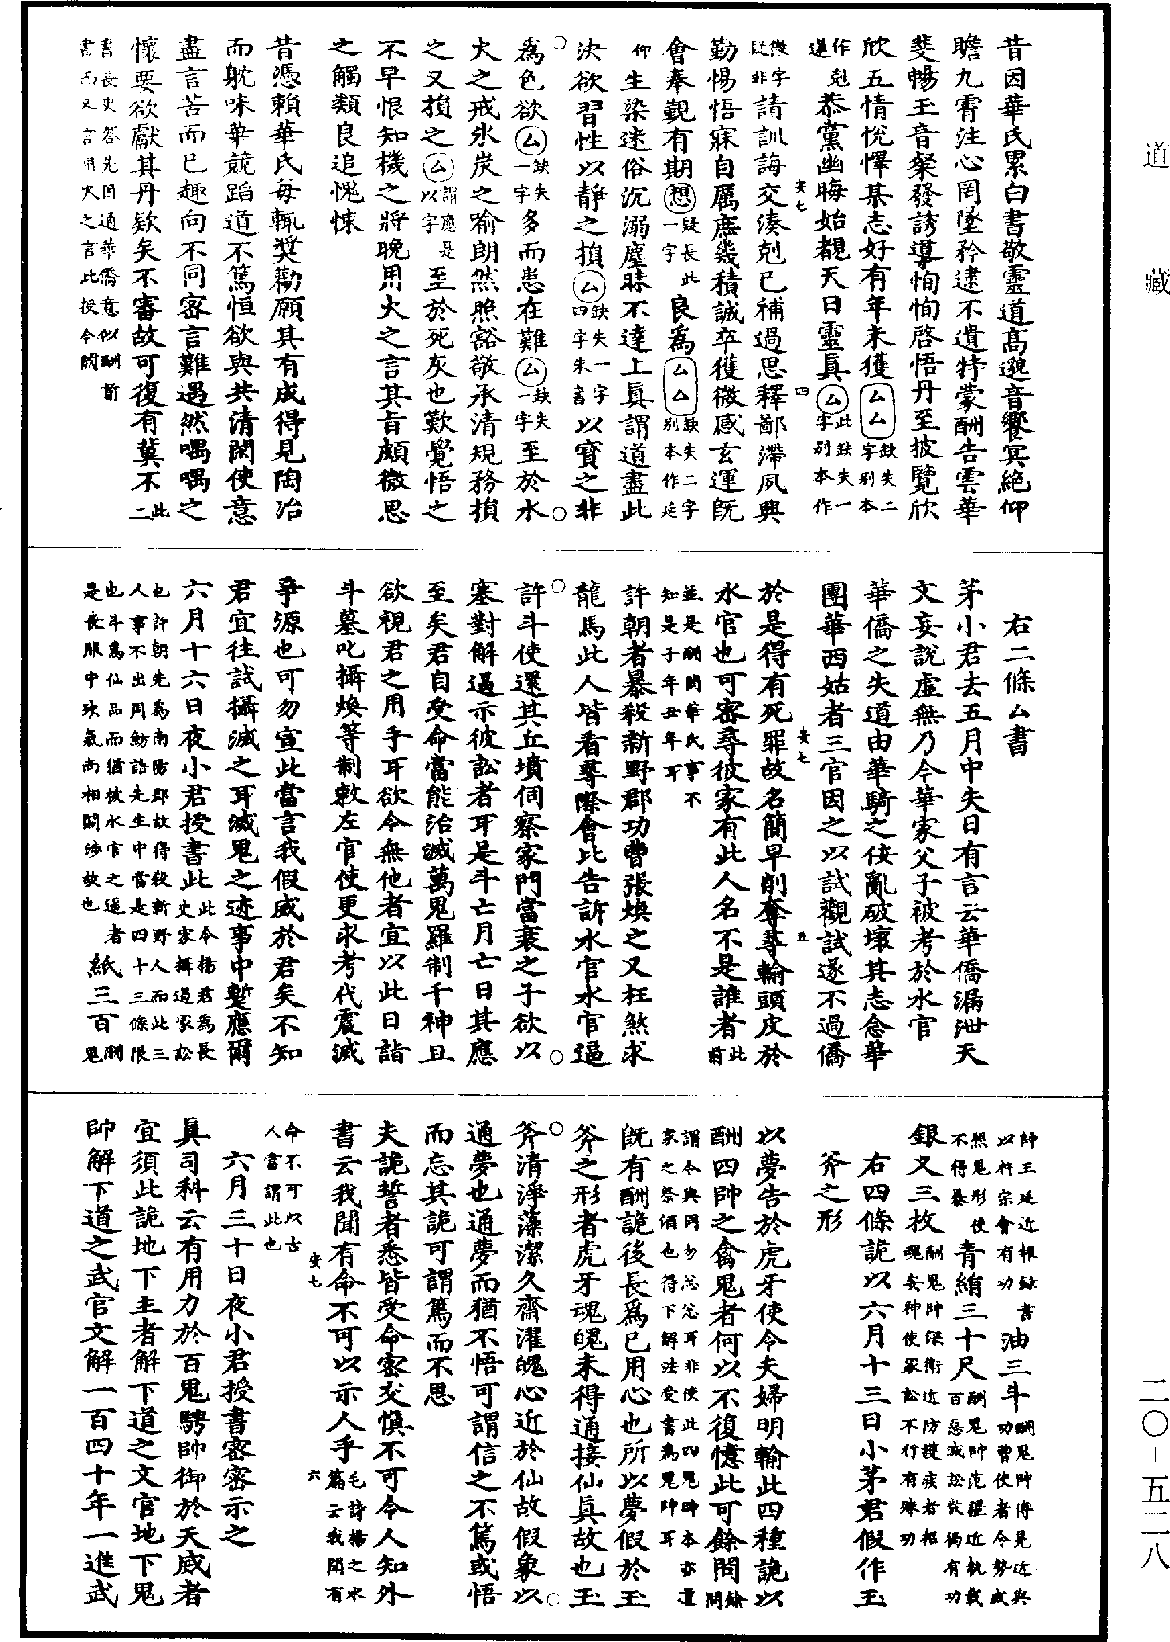 道藏
昔因華氏累白書敬靈道高邈音響冥絕仰
瞻九霄注心罔墜矜逮不遺特蒙酬告雲華
斐暢玉音粲發誘導恂恂啓悟丹至披覽欣
欣五情悅懌某志好有年未獲ムム缺失二字別本
作剋遑恭黨幽晦始覩天日靈真ム此缺失一字別本作
微字疑非請訓誨交湊剋已補過思釋鄙滯夙興
安七 四
勤惕悟寐自厲庶幾積誠卒獲微感玄運旣
會奉覲有期想疑長此一字良爲ムム缺失二字別本作延
仰生染迷俗沉溺塵昧不達上真謂道盡此
決欲習性以靜之損ム缺失一字四字朱書以賓之非
爲色欲ム缺失一字多而患在難ム缺失一字至於水
火之戒氷炭之喻朗然照豁敬承清規務損
之又損之ム謂應是以字至於死灰也歎覺悟之
不早恨知機之將晚用火之言其旨頗微思
之觸類良追愧悚
昔憑賴華氏每輒奬勸願其有成得見陶冶
而躭味華競蹈道不篤恒欲與共清閑使意
盡言苦而已趣向不同密言難遇然喁喁之
懷要欲獻其丹欵矣不審故可復有冀不此二
書長史答先因通華僑意似酬前
書而又言用火之言此授今闕
右二條ム書
茅小君去五月中失日有言云華僑漏泄天
文妄說虛無乃今華家父子被考於水官
華僑之失道由華騎之佞亂破壞其志念華
團華西姑者三官因之以試觀試遂不過僑
於是得有死罪故名簡早削奪尋輪頭皮於
安七 五
水官也可審尋彼家有此人名不是誰者此前
並是酬問華氏事不
知是子年丑年耳
許朝者暴殺新野郡功曹張煥之又枉煞求
龍馬此人皆看尋際會比告訴水官水官逼
許斗使還其丘墳伺察家門當衰之子欲以
塞對解逼示彼訟者耳是斗亡月亡日其應
至矣君自受命當能治滅萬鬼羅制千神且
欲視君之用手耳欲令無他者宜以此日詣
斗墓叱攝煥等制敕左官使更求考代震滅
爭源也可勿宣此當言我假威於君矣不知
君宜往試攝滅之耳滅鬼之迹事中蹔應爾
六月十六日夜小君授書此此令楊君爲長史家攝遣冢訟
也許朝先爲南陽郡故得殺新野人而此三
人事不出周魴誥先生中當是四十三條限
也斗爲仙品而猶被水官之逼者紙三百酬鬼
是長服中殃氣尚相關涉故也
帥王延近報錄書油三斗酬鬼帥傅晃近與
以杵宗會有功功曹使者令勢威
照鬼形使不得暴青絹三十尺酬鬼帥范疆近執戟百惡戒訟散禍有功
銀叉三枚酬鬼帥梁衛近防護疾者招魂安神使冢訟不行有殊功
右四條詭以六月十三日小茅君假作玉
斧之形
以夢告於虎牙使令夫婦明輸此四種詭以
酬四帥之禽鬼者何以不復憶此可餘問餘問
謂今與問勿忩忩耳非使此四鬼帥本亦道
家之祭酒也得下解法受書爲鬼帥耳
旣有酬詭後長爲已用心也所以夢假於玉
斧之形者虎牙魂魄未得通接仙真故也玉
斧清淨藻潔久齋濯魄心近於仙故假象以
通夢也通夢而猶不悟可謂信之不篤或悟
而忘其詭可謂篤而不思
夫詭誓者悉皆受命密交愼不可令人知外
書云我聞有命不可以示人乎毛詩揚之水篇云我聞有
安七 六
命不可以古
人當謂此也
六月三十日夜小君授書密密示之
真司科云有用力於百鬼騁帥御於天威者
宜須此詭地下主者解下道之文官地下鬼
帥解下道之武官文解一百四十年一進武
二〇－五二八